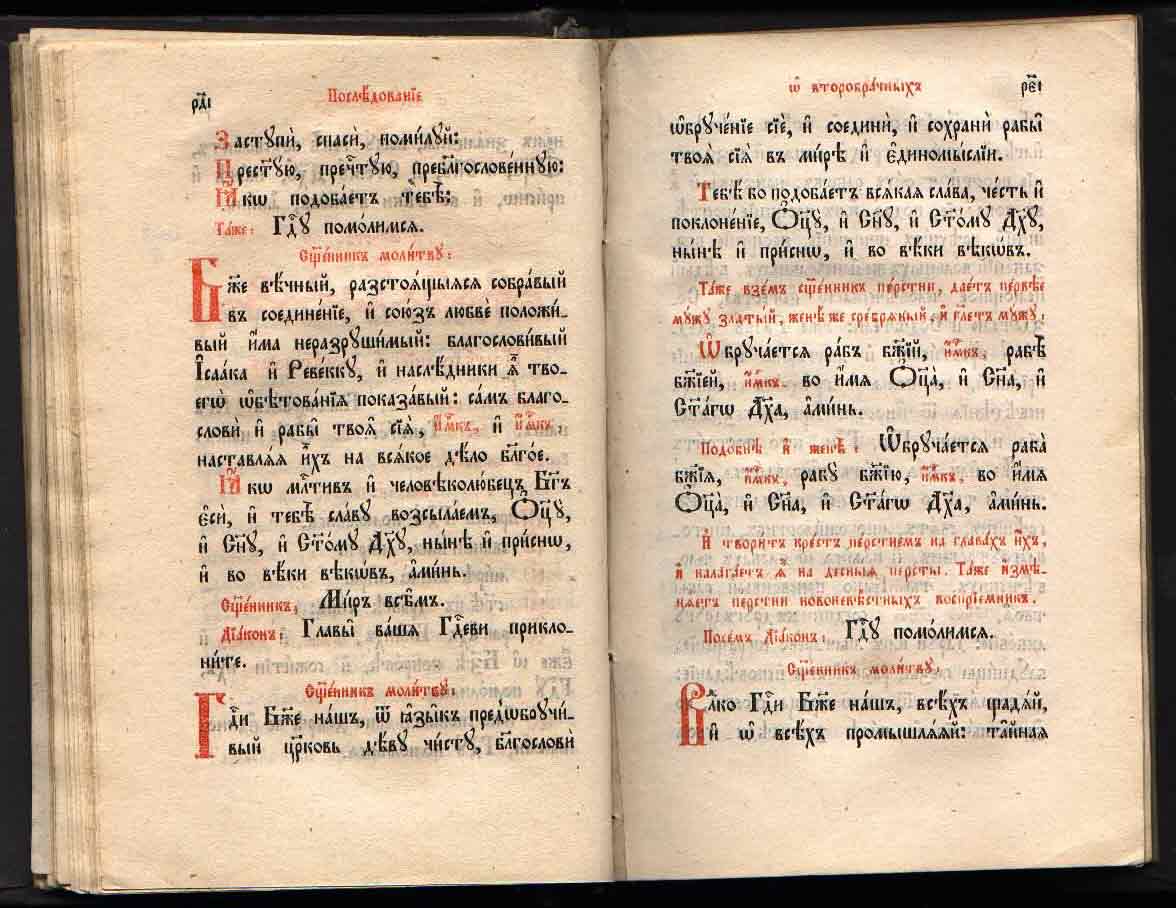 р҃ді
Послѣ́дованїе
Застꙋпѝ, спасѝ, поми́лꙋй:
Прест҃ꙋ́ю, пречⷭ҇тꙋю, пребл҃гослове́ннꙋю:
Ꙗ҆́кѡ подоба́етъ тебѣ̀:
Та́же: Гдⷭ҇ꙋ помо́лимсѧ.
Сщ҃е́нникъ моли́твꙋ:
Бж҃е вѣ́чный, разстоѧ́щыѧсѧ собра́вый
въ соедине́нїе, и҆ сою́зъ любвѐ положи́-
вый и҆̀ма неразрꙋши́мый: благослови́вый
І҆саа́ка и҆ Реве́ккꙋ, и҆ наслѣ́дники ѧ҆̀ тво-
егѡ̀ ѡ҆бѣтова́нїѧ показа́вый: са́мъ благо-
словѝ и҆ рабы̑ твоѧ̑ сїѧ̑, и҆́м҃къ, и҆ и҆́м҃кꙋ,
наставлѧ́ѧ и҆̀хъ на всѧ́кое дѣ́ло бл҃го́е.
Ꙗ҆́кѡ млⷭ҇тивъ и҆ человѣколю́бецъ Бг҃ъ
є҆сѝ, и҆ тебѣ̀ сла́вꙋ возсыла́емъ, Ѻ҆ц҃ꙋ̀,
и҆ Сн҃ꙋ, и҆ Ст҃о́мꙋ Дх҃ꙋ, ны́нѣ и҆ при́снѡ,
и҆ во вѣ́ки вѣкѡ́въ, а҆ми́нь.
Сщ҃е́нникъ, Ми́ръ всѣ̑мъ.
Дїа́конъ: Главы̑ ва́шѧ Гдⷭ҇еви прикло-
ни́те.
Сщ҃е́нникъ моли́твꙋ:
Гдⷭ҇и Бж҃е на́шъ, ѿ ꙗ҆зы̑къ предѡбрꙋчи́-
вый цр҃ковь дѣ́вꙋ чи́стꙋ, бл҃гословѝ
ѡ҆ второбра́чныхъ
р҃еі
ѡ҆брꙋче́нїе сїѐ, и҆ соединѝ, и҆ сохранѝ рабы̑
твоѧ̑ сїѧ̑ въ ми́рѣ и҆ є҆диномы́слїи.
Тебѣ́ бо подоба́етъ всѧ́каѧ сла́ва, че́сть и҆
поклоне́нїе, Ѻ҆ц҃ꙋ̀, и҆ Сн҃ꙋ, и҆ Ст҃о́мꙋ Дх҃ꙋ,
ны́нѣ и҆ при́снѡ, и҆ во вѣ́ки вѣкѡ́въ.
Та́же взе́мъ сщ҃е́нникъ пе́рстни, дае́тъ пе́рвѣе
мꙋ́жꙋ златы́й, женѣ́ же сре́брѧный, и҆ гл҃етъ мꙋ́жꙋ:
Ѡ҆брꙋча́етсѧ ра́бъ бж҃їй, и҆́м҃къ, рабѣ̀
бж҃їей, и҆́м҃къ. во и҆́мѧ Ѻ҆ц҃а̀, и҆ Сн҃а, и҆
Ст҃а́гѡ Дх҃а, а҆ми́нь.
Подо́бнѣ и҆ женѣ̀: Ѡ҆брꙋча́етсѧ раба̀
бж҃їѧ, и҆́м҃къ, рабꙋ̀ бж҃їю, и҆́м҃къ, во и҆́мѧ
Ѻ҆ц҃а̀, и҆ Сн҃а, и҆ Ст҃а́гѡ Дх҃а, а҆ми́нь.
И҆ твори́тъ кре́стъ пе́рстнемъ на глава́хъ и҆́хъ,
и҆ налага́етъ ѧ҆̀ на десны̑ѧ пе́рсты. Та́же и҆змѣ-
нѧ́етъ пе́рстни новоневѣ́стныхъ воспрїе́мникъ.
Посе́мъ Дїа́конъ: Гдⷭ҇ꙋ помо́лимсѧ.
Сщ҃е́нникъ моли́твꙋ:
Влⷣко Гдⷭ҇и Бж҃е на́шъ, всѣ́хъ щадѧ́й,
и҆ ѡ҆ всѣ́хъ промышлѧ́ѧй: та̑йнаѧ